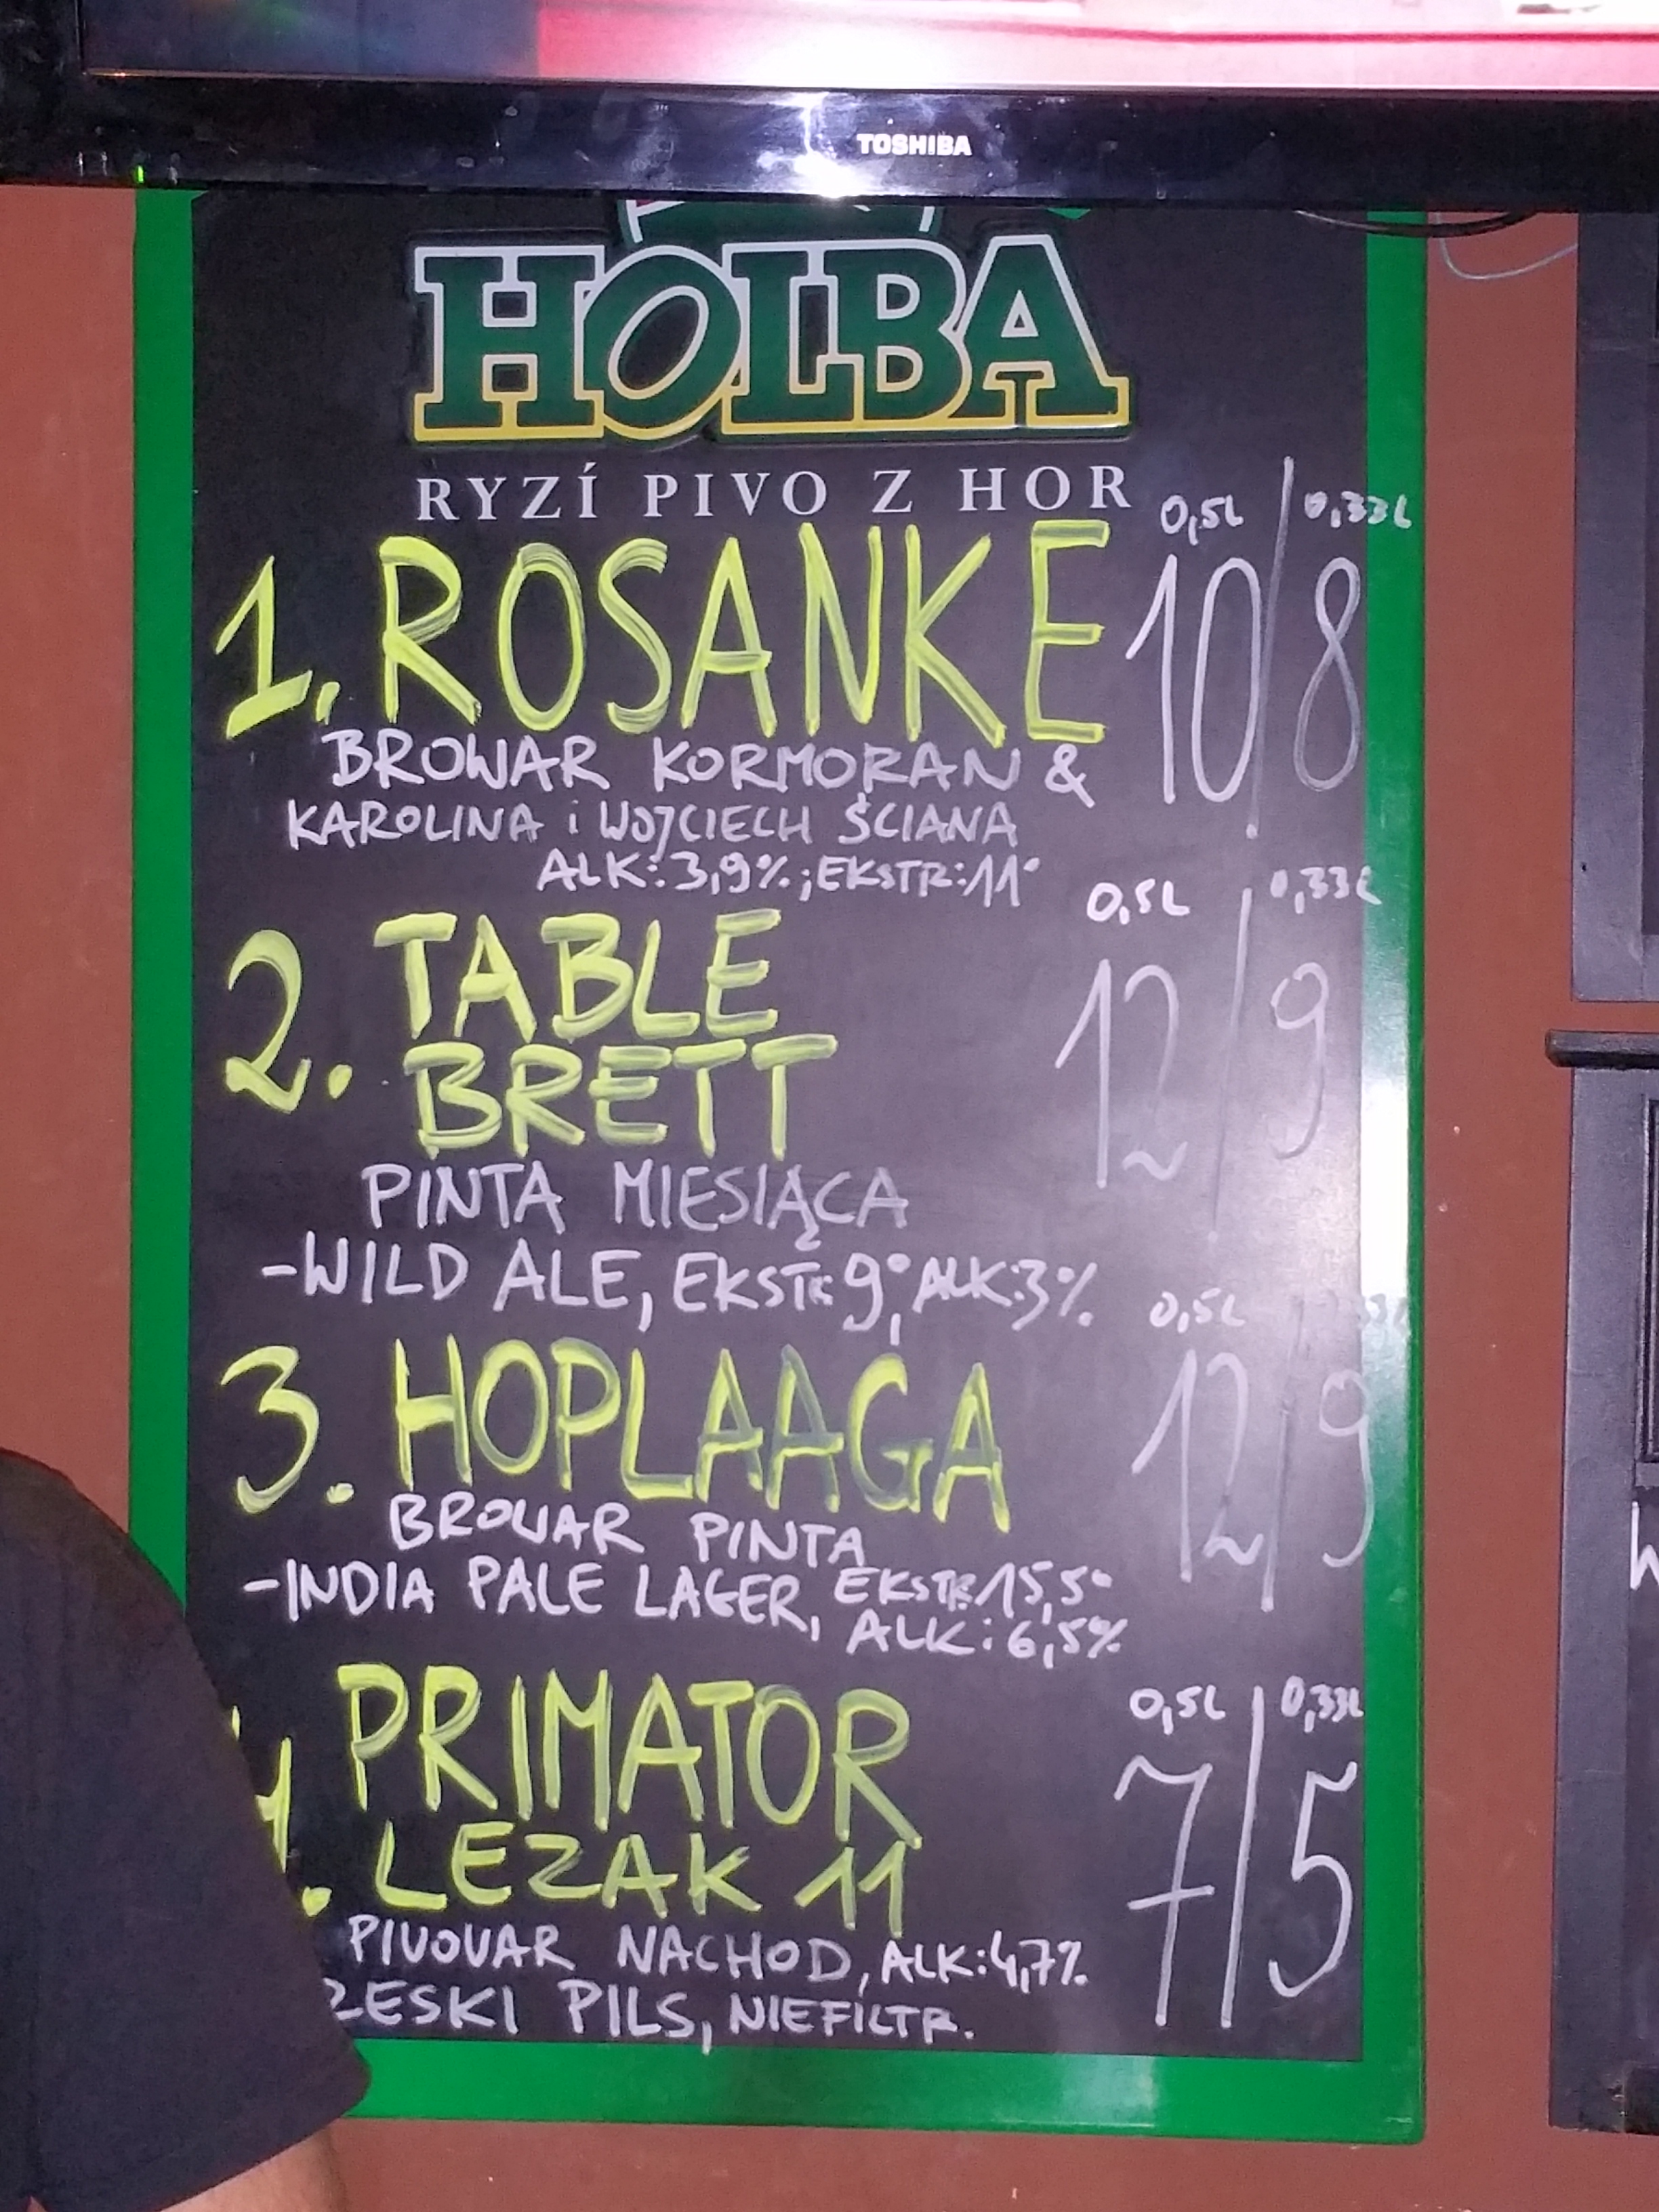 TOSHIBA
HOLBA
RYZÍ PIVO Z HOR
0,5L / 0,33L
1. ROSANKE 10/8
BROWAR KORMORAN &
KAROLINA i WOJCIECH ŚCIANA
ALK: 3,9%; EKSTR: 11°
0,5L / 0,33L
2. TABLE 12/9
BRETT
PINTA MIESIĄCA
-WILD ALE, EKSTR: 9°, ALK: 3%
0,5L
3. HOPLAAGA 12/9
BROWAR PINTA
-INDIA PALE LAGER, EKSTR: 15,5°
ALK: 6,5%
0,5L / 0,33L
4. PRIMATOR 7/5
LEZAK 11
PIVOVAR NACHOD, ALK: 4,7%
ZESKI PILS, NIEFILTR.